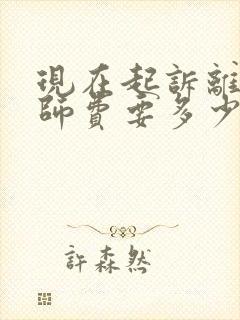 現在起訴離
師費要多少
許森然